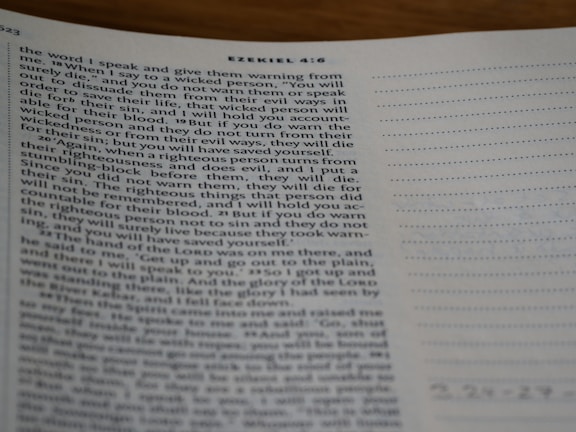 523
EZEKIEL 4:6
the word I speak and give them warning from
me. 18 When I say to a wicked person, "You will
surely die," and you do not warn them or speak
out to dissuade them from their evil ways in
order to save their life, that wicked person will
die for b their sin, and I will hold you account-
able for their blood. 19 But if you do warn the
wicked person and they do not turn from their
wickedness or from their evil ways, they will die
for their sin; but you will have saved yourself.
20 'Again, when a righteous person turns from
their righteousness and does evil, and I put a
stumbling-block before them, they will die.
Since you did not warn them, they will die for
their sin. The righteous things that person did
will not be remembered, and I will hold you ac-
countable for their blood. 21 But if you do warn
the righteous person not to sin and they do not
sin, they will surely live because they took warn-
ing, and you will have saved yourself.'
22 The hand of the LORD was on me there, and
he said to me, 'Get up and go out to the plain,
and there I will speak to you.' 23 So I got up and
went out to the plain. And the glory of the LORD
was standing there, like the glory I had seen by
the River Kebar, and I fell face down.
24 Then the Spirit came into me and raised me
to my feet. He spoke to me and said: 'Go, shut
yourself inside your house. 25 And you, son of
man, they will tie with ropes; you will be bound
so that you cannot go out among the people. 26 I
will make your tongue stick to the roof of your
mouth so that you will be silent and unable to
rebuke them, for they are a rebellious people.
27 But when I speak to you, I will open your
mouth and you shall say to them, "This is what
3 24-27 -